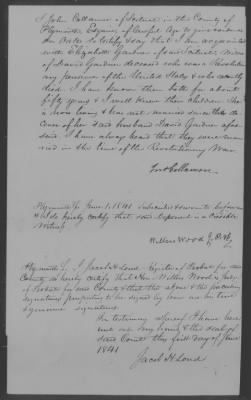 I John Collamore of Scituate in the County of
Plymouth Esquire, of lawful Age to give evidence
on Oath do testify & say that I am acquainted
with Elizabeth Gardner of said Scituate, Widow
of David Gardner deceased who was a Revolution
ary pensioner of the United States & who recently
died. I have known them both for about
fifty years & I well knew their children. She
is now living & has not married since the de
cease of her said husband David Gardner afore
said. I have always heard that they were mar
ried in the time of the Revolutionary War
John Collamore
Plymouth Ss June 1, 1841 Subscribed & sworn to before me
& I do hereby certify that said deponent is a credible
Witness
Wilkes Wood
Plymouth Ss. I Jacob H Loud Register of Probate for said
County do hereby certify that Hon. Wilkes Wood is Judge
of Probate for said County & that the above & the preceding
signatures purporting to be signed by him are his true
& genuine signatures.
In testimony whereof I have here
unto set my hand & the seal of
said Court this first day of June
1841
Jacob H Loud